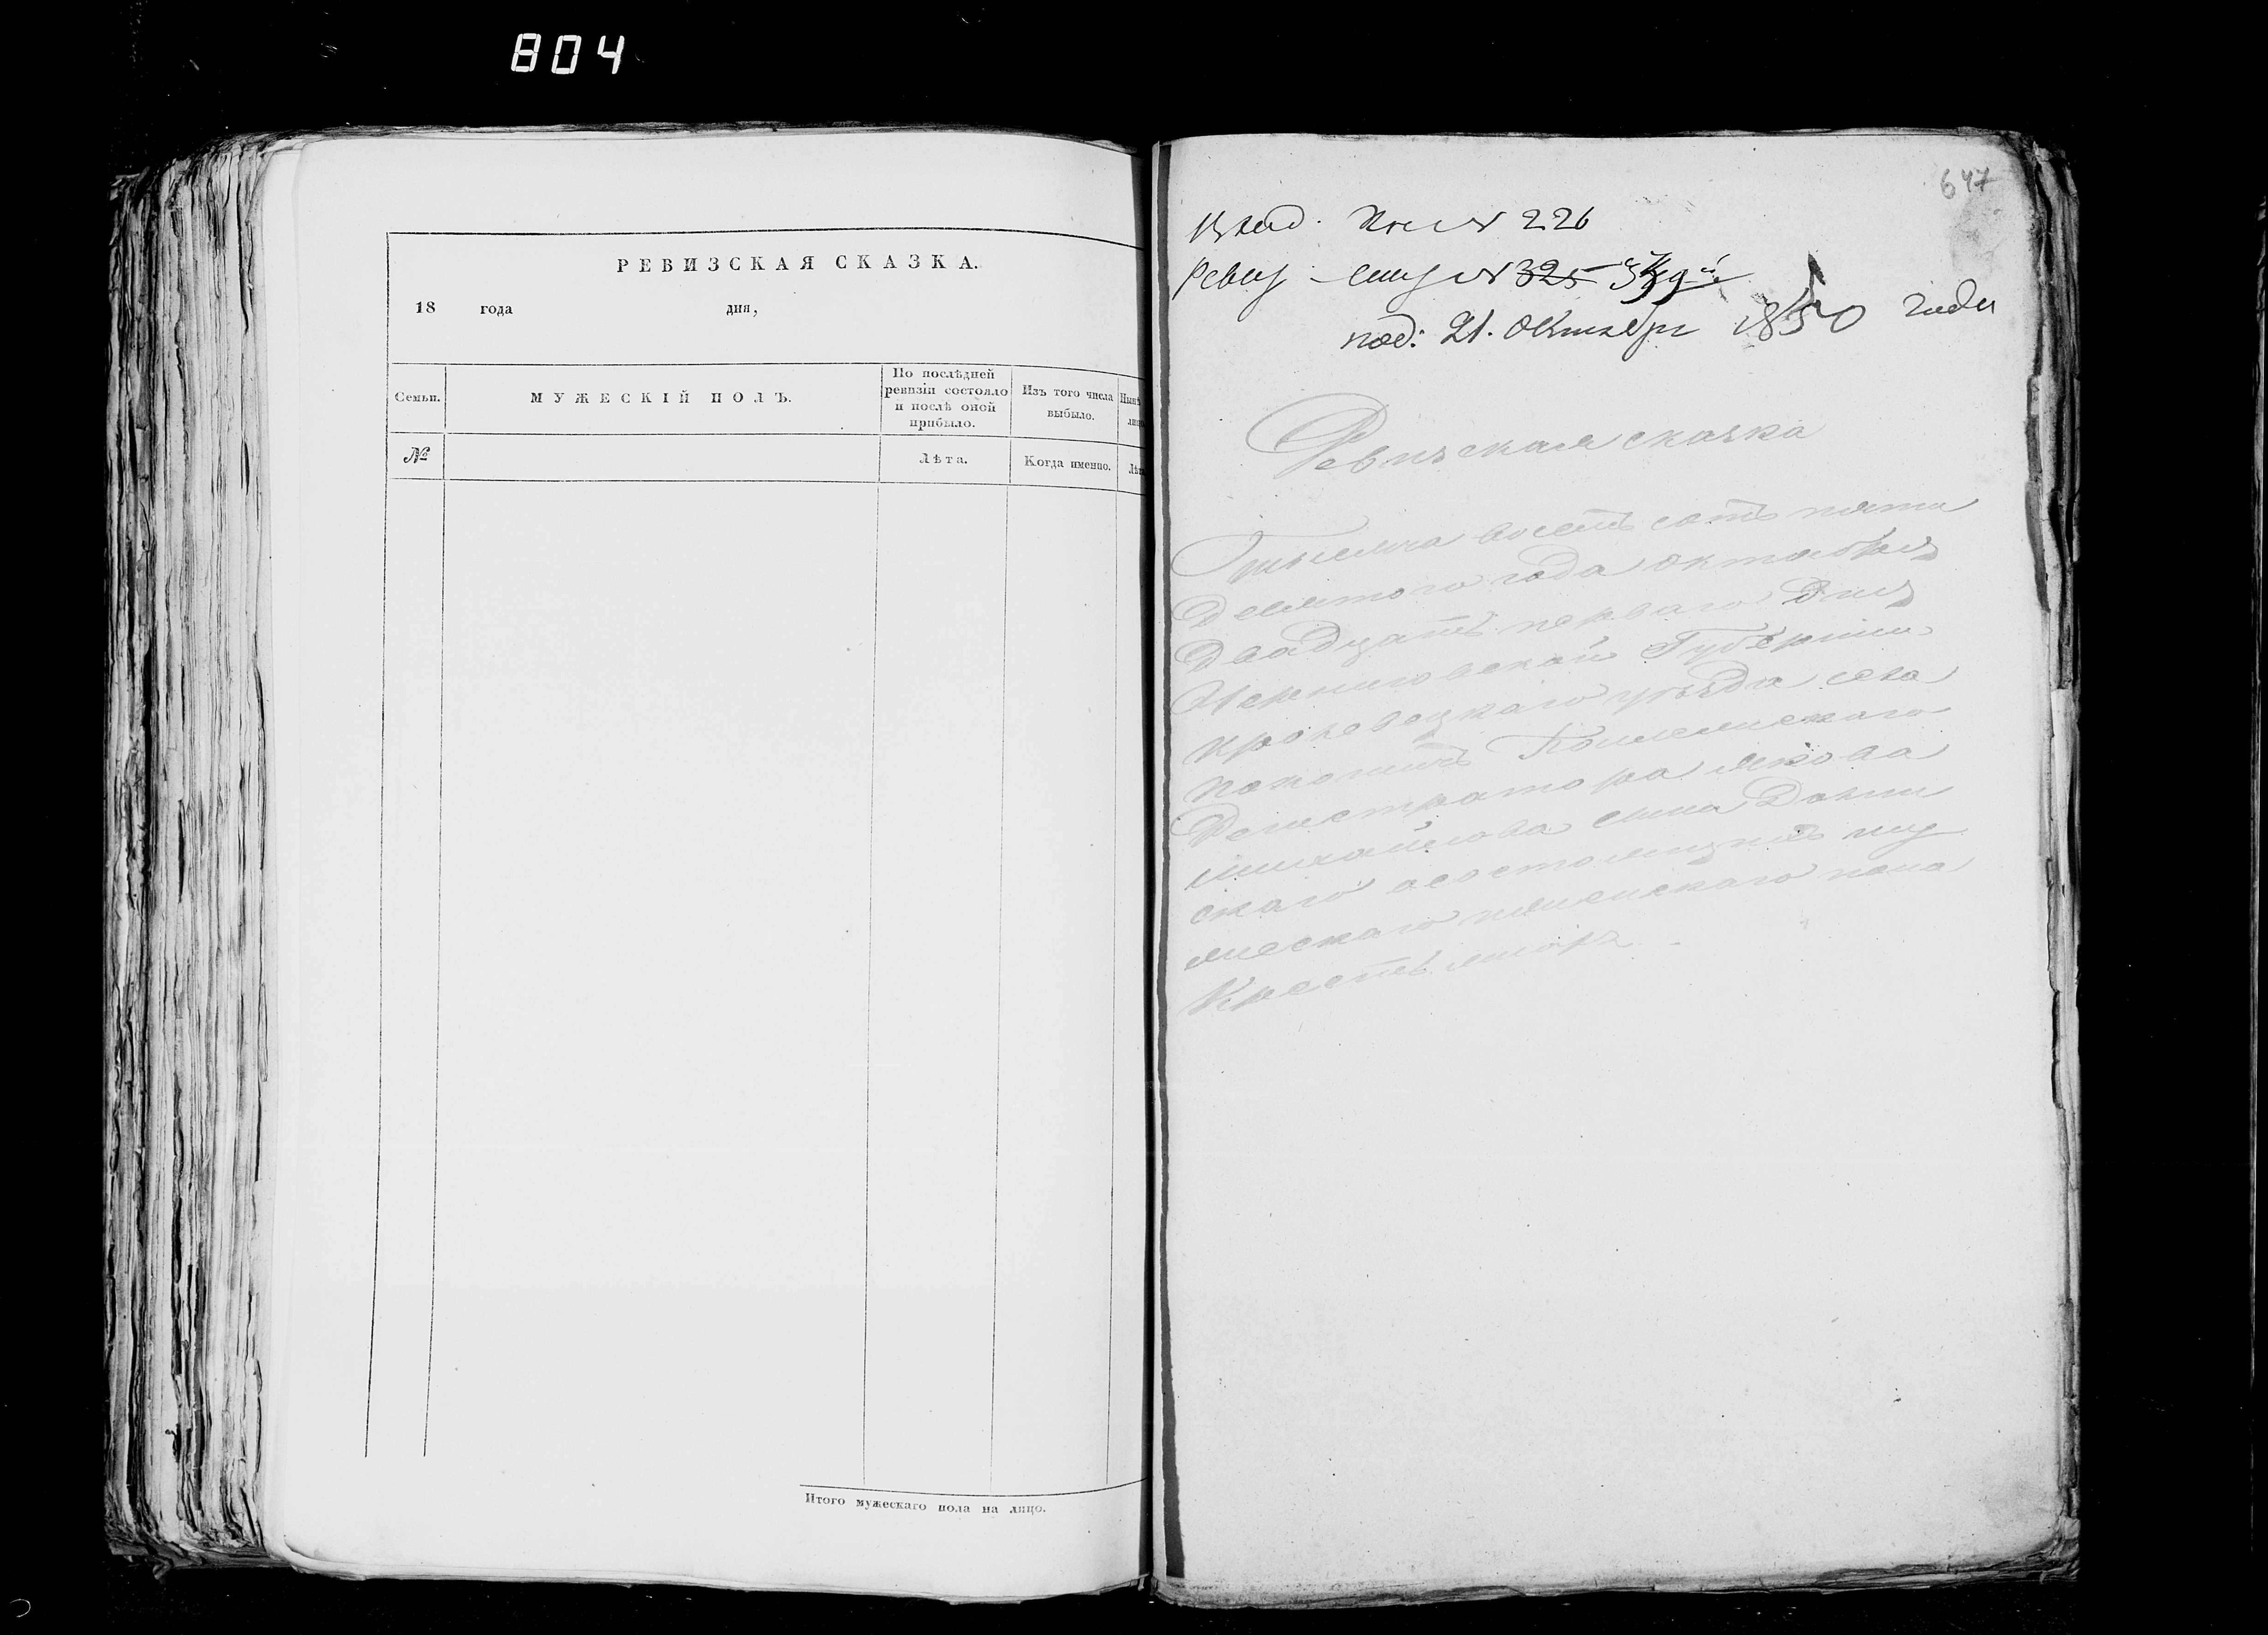 804
РЕВИЗСКАЯ СКАЗКА.
18 года дня,
Семьи.
МУЖЕСКІЙ ПОЛЪ.
По послѣдней ревизіи состояло и послѣ оной прибыло.
Изъ того числа выбыло.
№
Лѣта.
Когда именно.
Итого мужескаго пола на лицо.
647
№ 226
Ревиз № 325
под: 21. Октября 1850 года
Ревизская сказка
Тысяча восемь сотъ пяти
десятого года октября
двадцать перваго дня
Черниговской Губернии
кролевецкаго уезда села
Регистратора Якова
михайлова сына
скаго о состоящихъ му
жескаго женскаго пола
Крестьянахъ